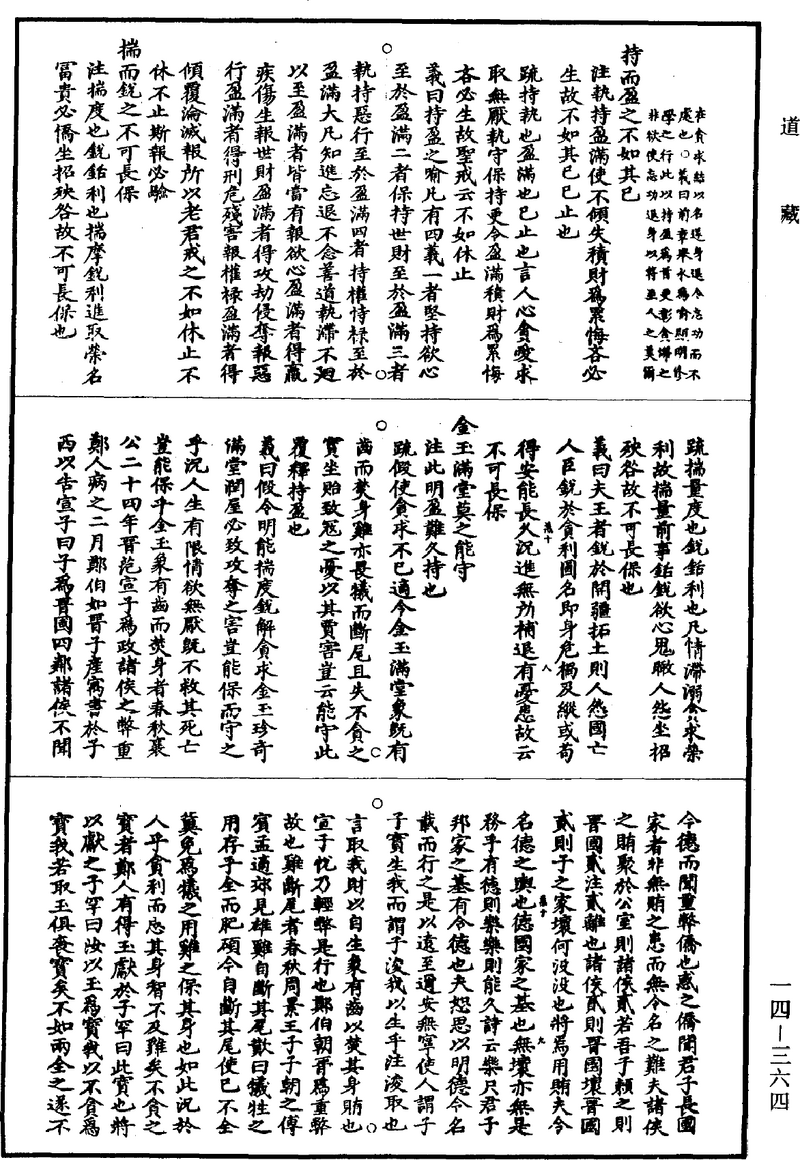 道藏
在貪求結以名遂身退令忘功而不
處也○義曰前章舉水爲喻顯明修
學之行此以持盈爲首更彰貪婪之
非欲使忘功退身以將至人之美爾
持而盈之不如其已
注執持盈滿使不傾失積財爲累悔吝必
生故不如其已已止也
疏持執也盈滿也已止也言人心貪愛求
取無厭執守保持更令盈滿積財爲累悔
吝必生故聖戒云不如休止
義曰持盈之喻凡有四義一者堅持欲心
至於盈滿二者保持世財至於盈滿三者
執持惡行至於盈滿四者持權恃祿至於
盈滿大凡知進忘退不念善道執滯不迴
以至盈滿者皆當有報欲心盈滿者得贏
疾傷生報世財盈滿者得攻劫侵奪報惡
行盈滿者得刑危殘害報權祿盈滿者得
傾覆淪滅報所以老君戒之不如休止不
休不止斯報必驗
揣而銳之不可長保
注揣度也銳銛利也揣摩銳利進取榮名
富貴必憍坐招殃咎故不可長保也
疏揣量度也銳銛利也凡情滯溺貪求榮
利故揣量前事銛銳欲心鬼瞰人怨坐招
殃咎故不可長保也
義曰夫王者銳於開疆拓土則人怨國亡
人臣銳於貪利圖名即身危禍及縱或苟
得安能長久況進無所補退有憂患故云
不可長保
金玉滿堂莫之能守
注此明盈難久持也
疏假使貪求不已適令金玉滿堂象既有
齒而焚身雞亦畏犧而斷尾且失不貪之
寶坐貽致冦之憂以其賈害豈云能守此
覆釋持盈也
義曰假令明能揣度銳解貪求金玉珍奇
滿堂潤屋必致攻奪之害豈能保而守之
乎況人生有限情欲無厭既不救其死亡
豈能保乎金玉象有齒而焚身者春秋襄
公二十四年晋范宣子爲政諸侯之幣重
鄭人病之二月鄭伯如晋子產寓書於子
西以告宣子曰子爲晋國四鄰諸侯不聞
令德而聞重幣僑也惑之僑聞君子長國
家者非無賄之患而無令名之難夫諸侯
之賄聚於公室則諸侯貳若吾子賴之則
晋國貳注貳離也諸侯貳則晋國壞晋國
貳則子之家壞何没没也將焉用賄夫令
名德之輿也德國家之基也無壞亦無是
務乎有德則樂樂則能久詩云樂只君子
邦家之基有令德也夫恕思以明德令名
載而行之是以遠至邇安無寧使人謂子
子實生我而謂子浚我以生乎注浚取也
言取我財以自生象有齒以焚其身賄也
宣子恱乃輕幣是行也鄭伯朝晋爲重幣
故也雞斷尾者春秋周景王子子朝之傅
賓孟適郊見雄雞自斷其尾歎曰犧牲之
用存乎全而肥碩今自斷其尾使已不全
冀免爲犧之用雞之保其身也如此況於
人乎貪利而忘其身智不及雞矣不貪之
寶者鄭人有得玉獻於子罕曰此寶也將
以獻之子罕曰汝以玉爲寶我以不貪爲
寶我若取玉俱喪寶矣不如兩全之遂不
一四—三六四